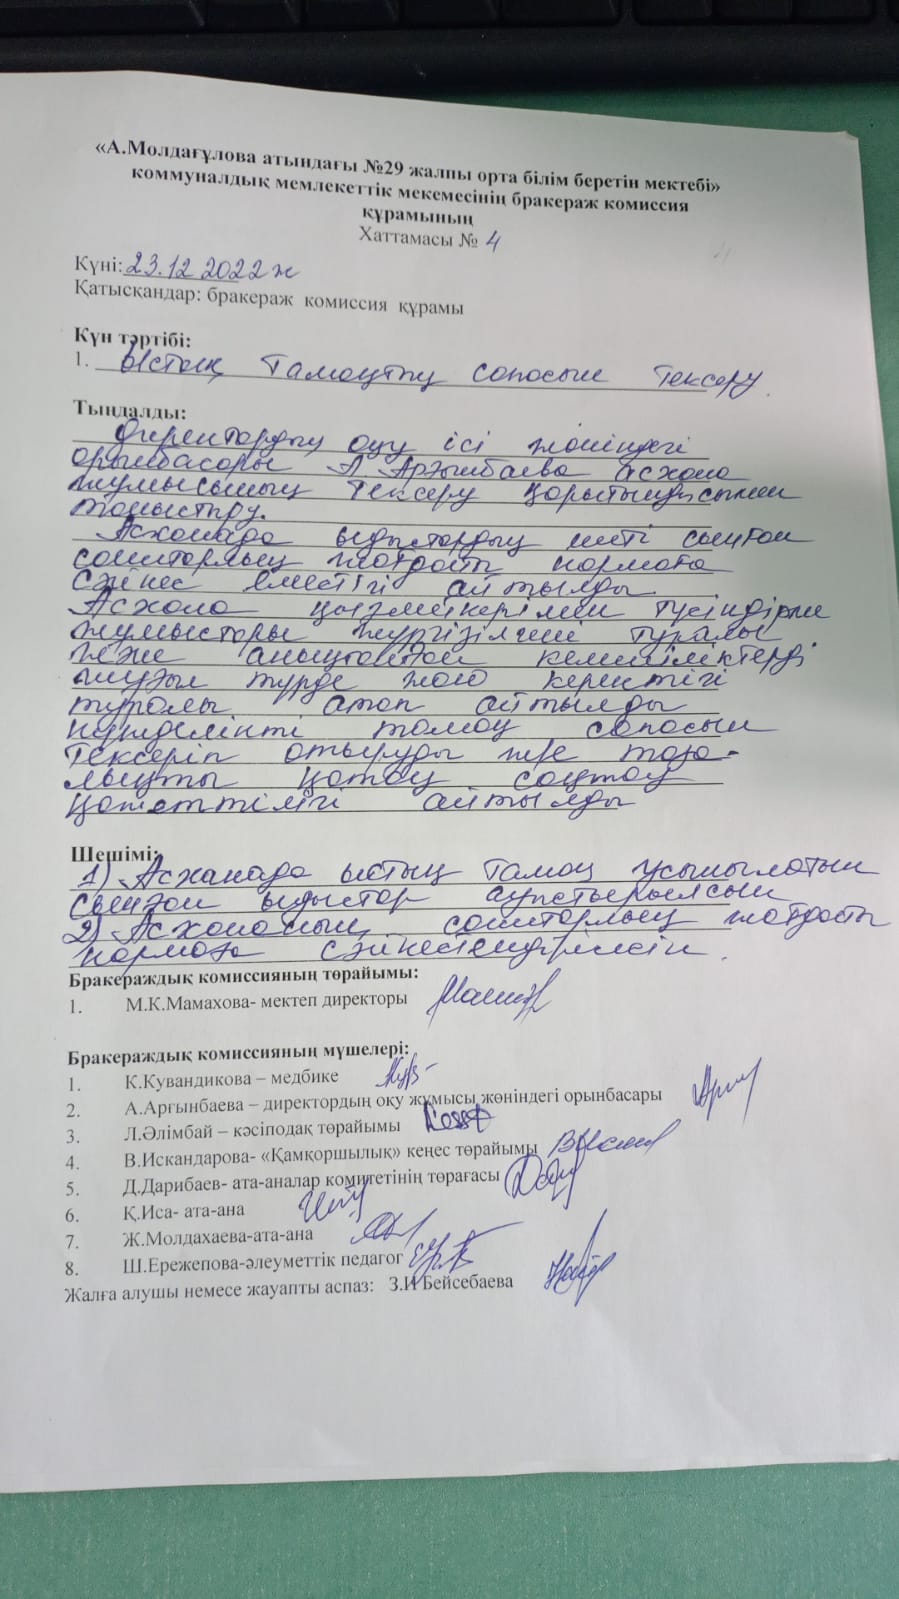 «А.Молдағұлова атындағы №29 жалпы орта білім беретін мектебі»
коммуналдық мемлекеттік мекемесінің бракераж комиссия
құрамының
Хаттамасы № 4
Күні: 23.12 2022 ж
Қатысқандар: бракераж комиссия құрамы
Күн тәртібі:
1. Ыстық тамақтың сапасын тексеру.
Тыңдалды:
Директордың оқу ісі жөніндегі
орынбасары А.Арғынбаева асхана
жұмысының тексеру қорытындысымен
таныстыру.
Асханада ыдыстардың шеті сынған
санитарлық жағдайы нормаға
сәйкес еместігі айтылды
Асхана қызметкерімен түсіндірме
жұмыстары жүргізілгені туралы
және анықталған кемшіліктерді
жуғыл түрде жою керектігі
туралы атап айтылды
күнделікті тамақ сапасын
тексеріп отыруды және таза-
лықты қатаң сақтау
қажеттілігі айтылды
Шешімі:
1) Асханада ыстық тамақ ұсынылатын
сынған ыдыстар ауыстырылсын
2) Асхананың санитарлық жағдайы
нормаға сәйкестендірілсін.
Бракераждық комиссияның төрайымы:
1. М.К.Мамахова- мектеп директоры
Бракераждық комиссияның мүшелері:
1. К.Кувандикова – медбике
2. А.Аргынбаева – директордың оқу жұмысы жөніндегі орынбасары
3. Л.Әлімбай – кәсіподақ төрайымы
4. В.Искандарова- «Қамқоршылық» кеңес төрайымы
5. Д.Дарибаев- ата-аналар комитетінің төрағасы
6. Қ.Иса- ата-ана
7. Ж.Молдахаева-ата-ана
8. Ш.Ережепова-әлеуметтік педагог
Жалға алушы немесе жауапты аспаз: З.И Бейсебаева